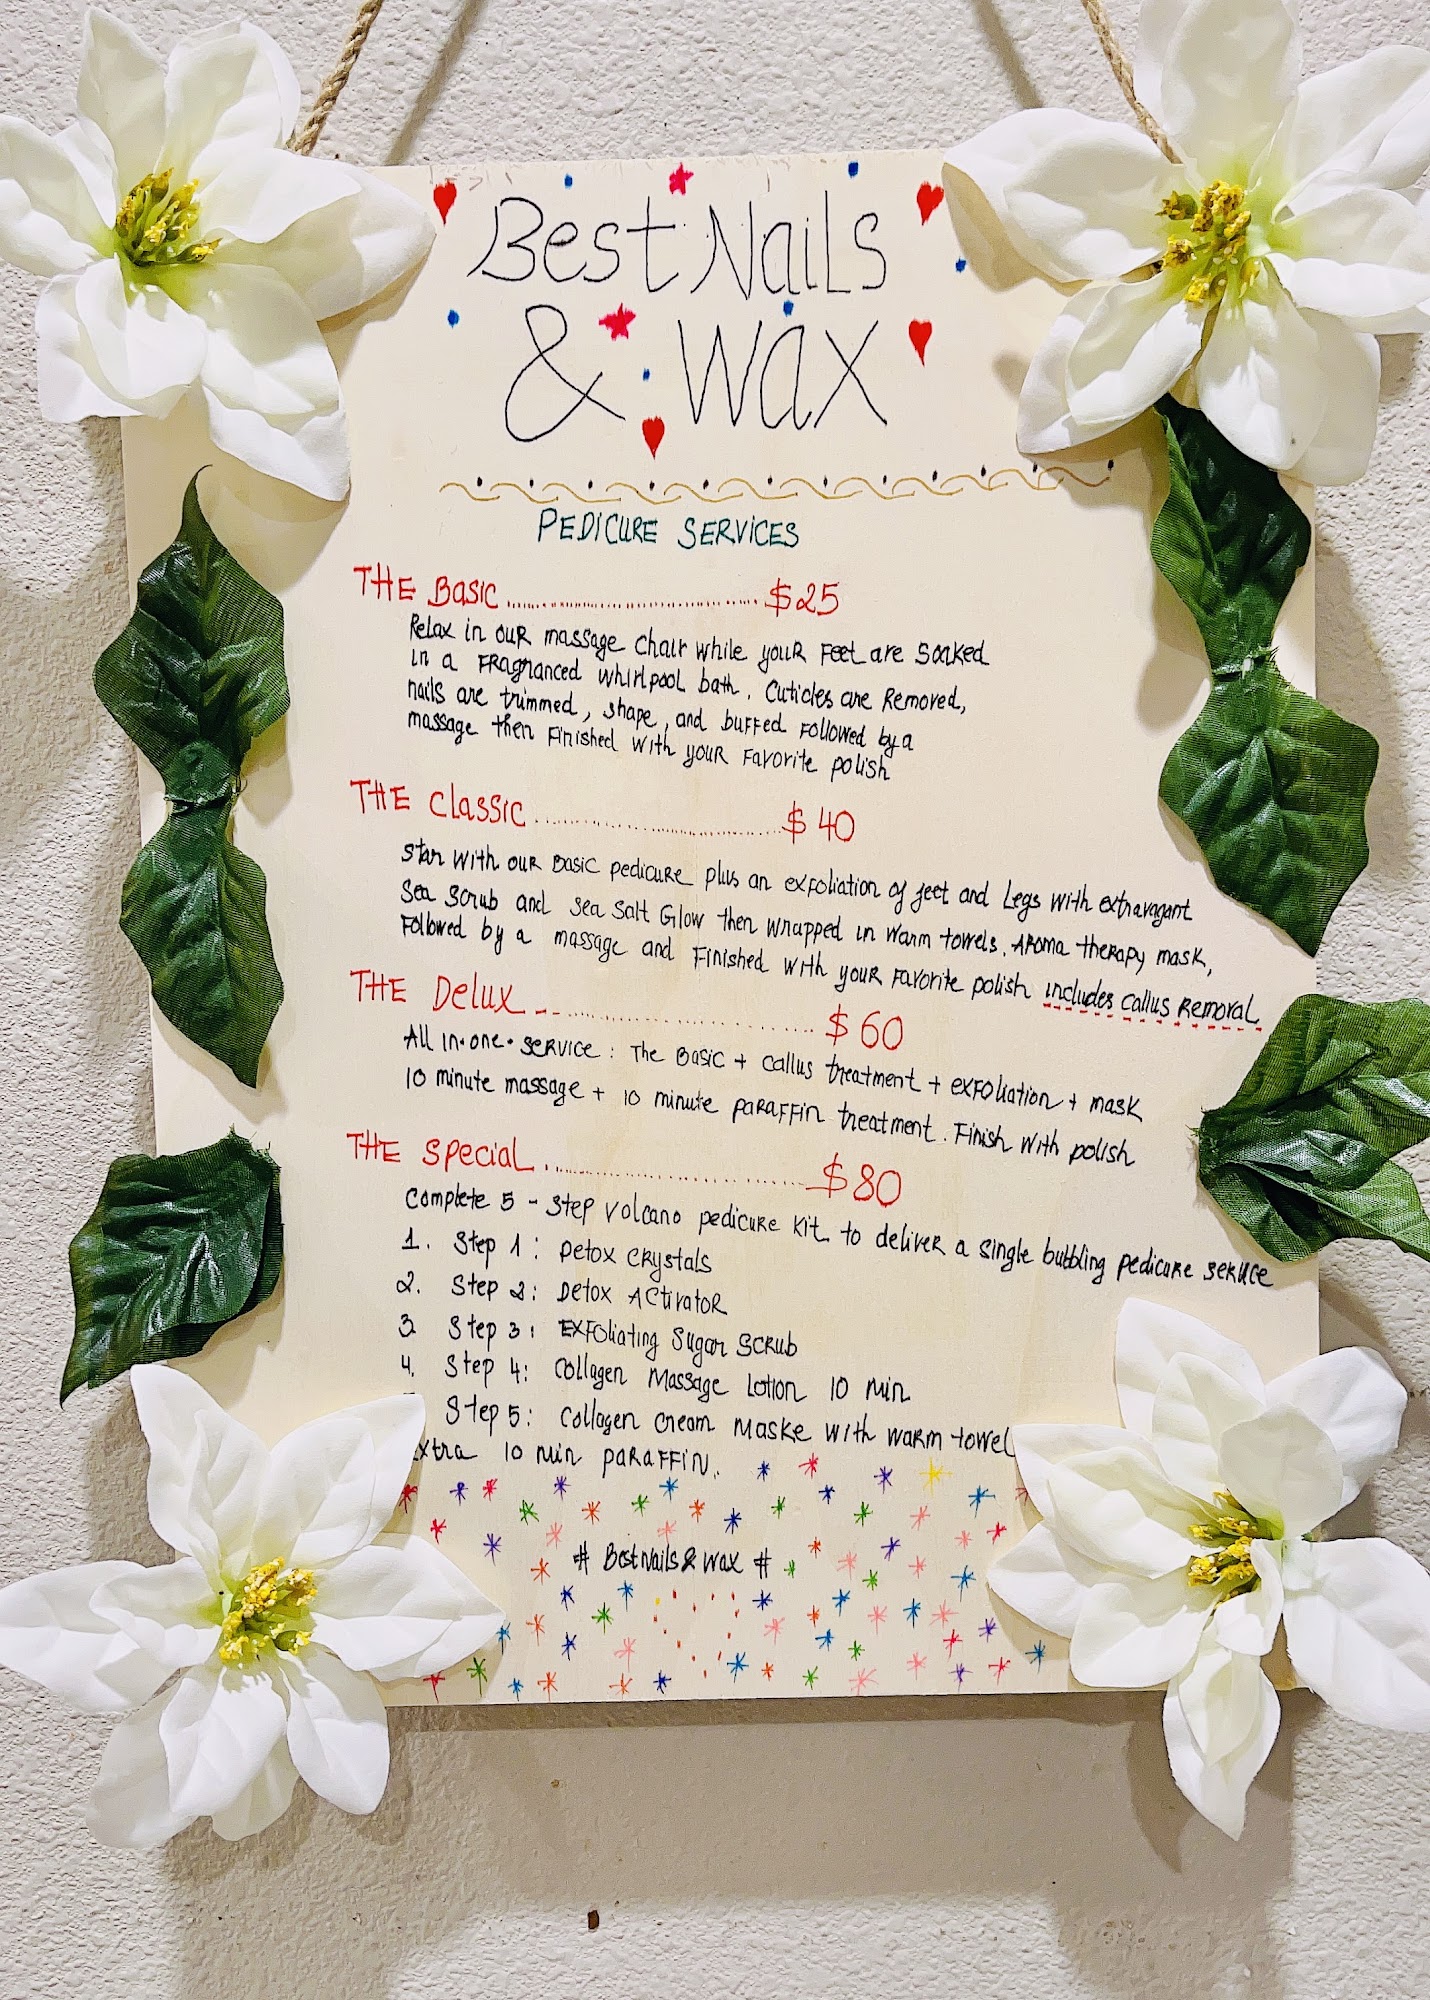 Best Nails
& Wax
PEDICURE SERVICES
THE Basic ........................ $25
Relax in our massage chair while your feet are soaked
in a fragranced whirlpool bath. Cuticles are removed,
nails are trimmed, shape, and buffed followed by a
massage then finished with your favorite polish
THE Classic ........................ $40
Star with our Basic pedicure plus an exfoliation of feet and Legs with extravagant
Sea Scrub and sea salt Glow then wrapped in warm towels. Aroma therapy mask,
followed by a massage and finished with your favorite polish includes callus removal
THE Delux ........................ $60
All in.one.service : The Basic + callus treatment + exfoliation + mask
10 minute massage + 10 minute paraffin treatment. Finish with polish
THE Special ........................ $80
Complete 5 - step volcano pedicure kit to deliver a single bubbling pedicure service
1. Step 1 : Detox crystals
2. Step 2 : Detox Activator
3. Step 3 : Exfoliating Sugar scrub
4. Step 4 : Collagen Massage Lotion 10 min
Step 5 : Collagen cream maske with warm towel
Extra 10 min paraffin.
# BestNails & Wax #